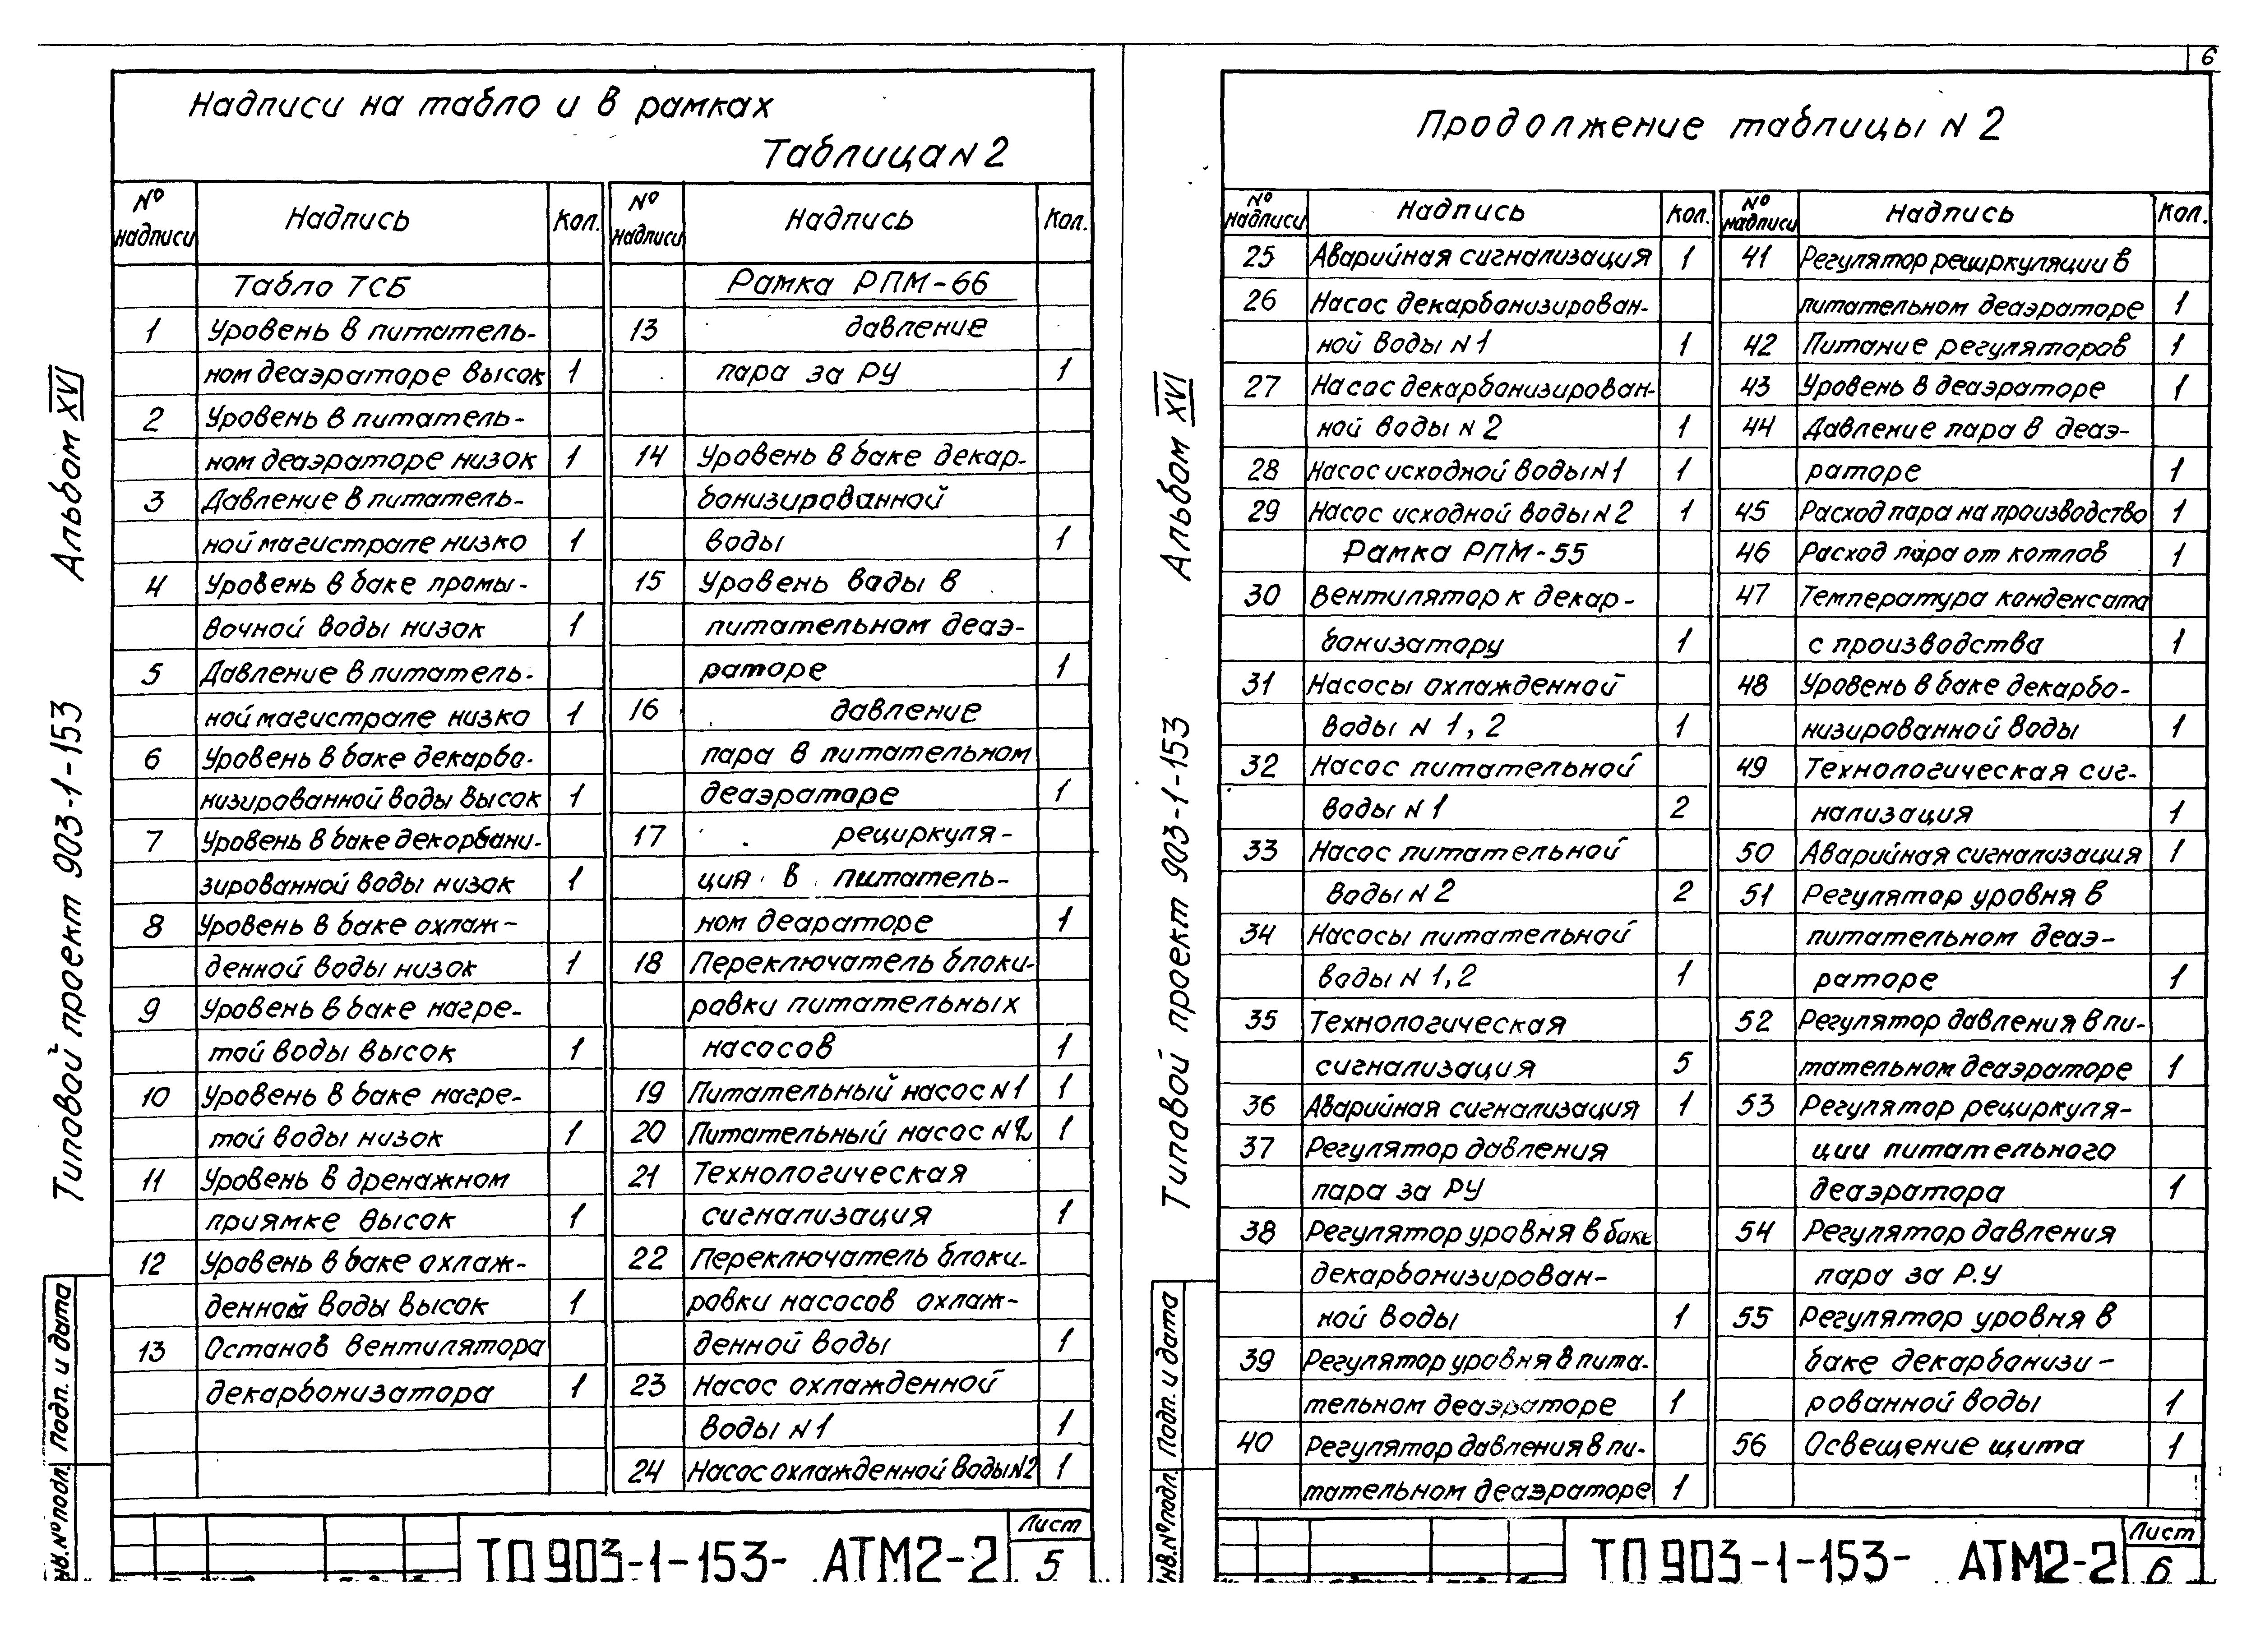 6
Надписи на табло и в рамках
Таблица N 2
№ надписи Надпись Кол.
Табло ТСБ
1 Уровень в питатель-
ном деаэраторе высок 1
2 Уровень в питатель-
ном деаэраторе низок 1
3 Давление в питатель-
ной магистрале низко 1
4 Уровень в баке промы-
вочной воды низок 1
5 Давление в питатель-
ной магистрале низко 1
6 Уровень в баке декарбо-
низированной воды высок 1
7 Уровень в баке декорбани-
зированной воды низок 1
8 Уровень в баке охлаж-
денной воды низок 1
9 Уровень в баке нагре-
той воды высок 1
10 Уровень в баке нагре-
той воды низок 1
11 Уровень в дренажном
приямке высок 1
12 Уровень в баке охлаж-
денной воды высок 1
13 Останов вентилятора
декарбонизатора 1
№ надписи Надпись Кол.
Рамка РПМ-66
13 давление
пара за РУ 1
14 Уровень в баке декар-
бонизированной
воды 1
15 Уровень воды в
питательном деаэ-
раторе 1
16 давление
пара в питательном
деаэраторе 1
17 рециркуля-
ция в питатель-
ном деараторе 1
18 Переключатель блоки-
ровки питательных
насосов 1
19 Питательный насос N 1 1
20 Питательный насос N 2 1
21 Технологическая
сигнализация 1
22 Переключатель блоки-
ровки насосов охлаж-
денной воды 1
23 Насос охлажденной
воды N 1 1
24 Насос охлажденной воды N 2 1
Альбом XVI
Типовой проект 903-1-153
Подп. и дата
Инв. № подл.
ТП 903-1-153- АТМ2-2
Лист
5
Продолжение таблицы N 2
№ надписи Надпись Кол.
25 Аварийная сигнализация 1
26 Насос декарбонизирован-
ной воды N 1 1
27 Насос декарбонизирован-
ной воды N 2 1
28 Насос исходной воды N 1 1
29 Насос исходной воды N 2 1
Рамка РПМ-55
30 Вентилятор к декар-
бонизатору 1
31 Насосы охлажденной
воды N 1, 2 1
32 Насос питательной
воды N 1 2
33 Насос питательной
воды N 2 2
34 Насосы питательной
воды N 1, 2 1
35 Технологическая
сигнализация 5
36 Аварийная сигнализация 1
37 Регулятор давления
пара за РУ
38 Регулятор уровня в баке
декарбонизирован-
ной воды 1
39 Регулятор уровня в пита-
тельном деаэраторе 1
40 Регулятор давления в пи-
тательном деаэраторе 1
№ надписи Надпись Кол.
41 Регулятор рециркуляции в
питательном деаэраторе 1
42 Питание регуляторов 1
43 Уровень в деаэраторе 1
44 Давление пара в деаэ-
раторе 1
45 Расход пара на производство 1
46 Расход пара от котлов 1
47 Температура конденсата
с производства 1
48 Уровень в баке декарбо-
низированной воды 1
49 Технологическая сиг-
нализация 1
50 Аварийная сигнализация 1
51 Регулятор уровня в
питательном деаэ-
раторе 1
52 Регулятор давления в пи-
тательном деаэраторе 1
53 Регулятор рециркуля-
ции питательного
деаэратора 1
54 Регулятор давления
пара за Р.У
55 Регулятор уровня в
баке декарбанизи-
рованной воды 1
56 Освещение щита 1
Альбом XVI
Типовой проект 903-1-153
Подп. и дата
Инв. № подл.
ТП 903-1-153- АТМ2-2
Лист
6